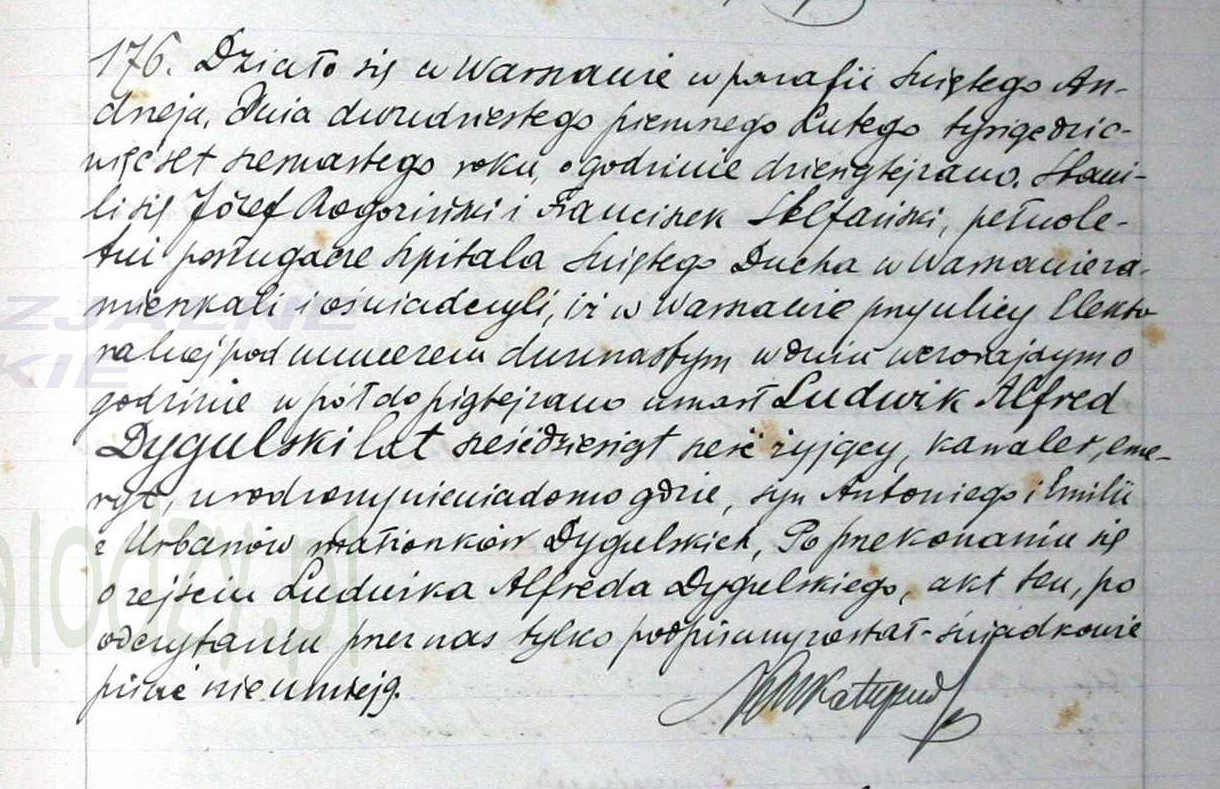 176. Działo się w Warszawie w parafii Świętego An-
drzeja, Dnia dwudziestego pierwszego Lutego tysiąc dzie-
więćset szesnastego roku, o godzinie dziesiątej rano. Stawi-
li się Józef Rogoziński i Franciszek Stefański, pełnole-
tni posługacze Szpitala Świętego Ducha w Warszawie za-
mieszkali i oświadczyli, iż w Warszawie przy ulicy Elekto
ralnej pod numerem dwunastym w dniu wczorajszym o
godzinie w pół do piątej rano umarł Ludwik Alfred
Dygulski lat sześćdziesiąt sześć żyjący, kawaler, eme-
ryt, urodzony niewiadomo gdzie, syn Antoniego i Emilii
z Urbanów małżonków Dygulskich, Po przekonaniu się
o zejściu Ludwika Alfreda Dygulskiego, akt ten, po
odczytaniu przez nas tylko podpisany został - świadkowie
pisać nie umieją.
ZJALNE
KIE
alodzy.pl